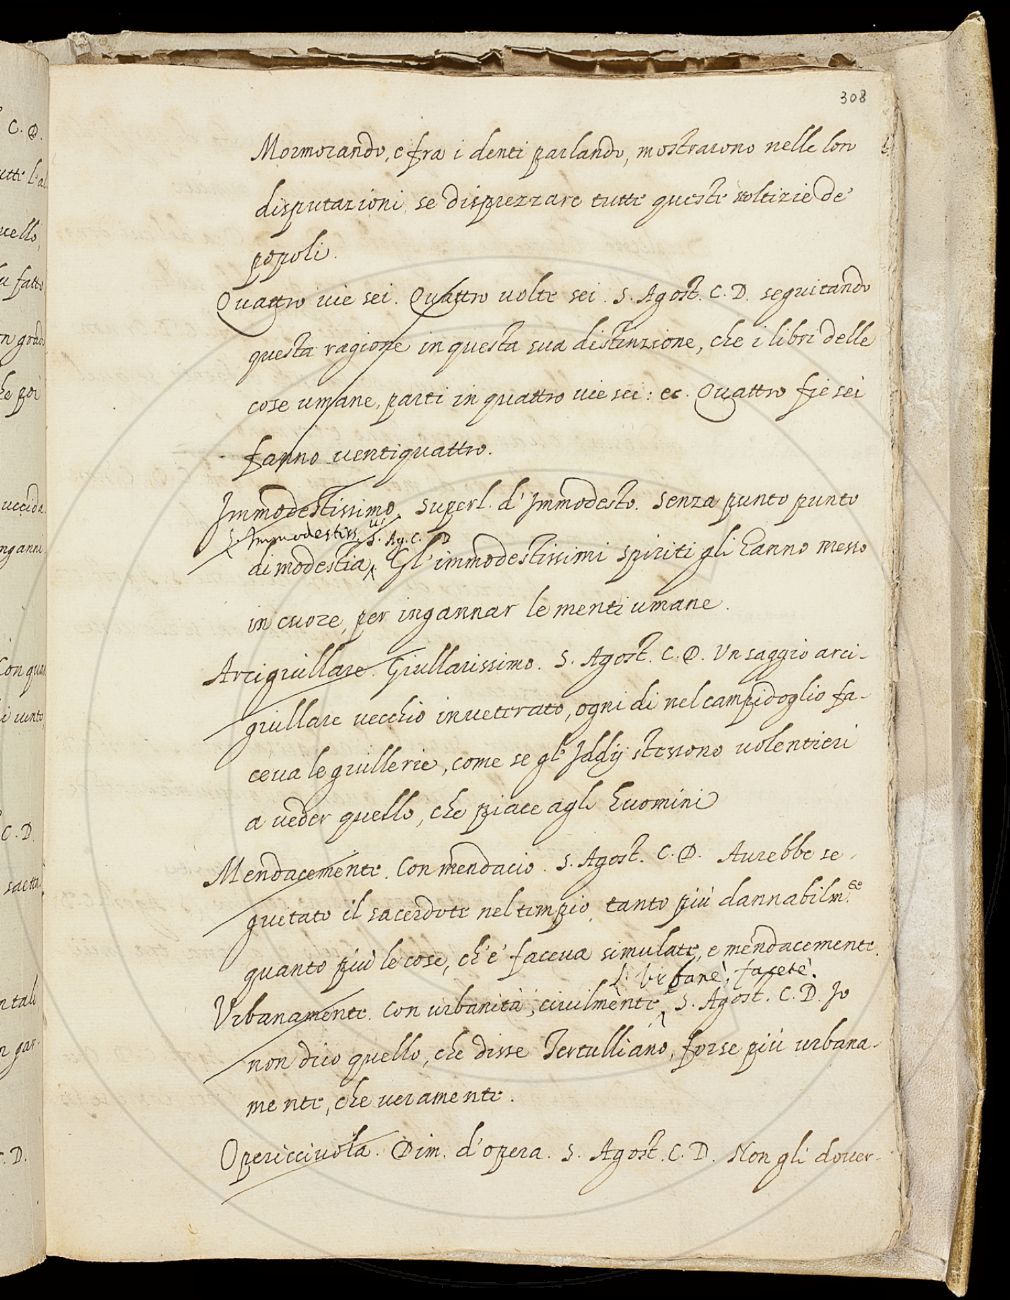 308
Mormorando, e fra i denti parlando, mostrarono nelle loro
disputazioni se disprezzare tutte queste stoltizie de'
popoli.
Quattro vie sei. Quattro volte sei. S. Agost. C. D. seguitando
questa ragione in questa sua distinzione, che i libri delle
cose umane, partì in quattro vie sei: ec. Quattro fie sei
fanno ventiquattro.
Immodestissimo. Superl. d'Immodesto. Senza punto punto
L. Immodestiss.us S. Ag. C. D
di modestia. Gl'immodestissimi spiriti gli hanno messo
in cuore, per ingannar le menti umane.
Arcigiullare. Giullarissimo. S. Agost. C. D. Un saggio arci-
giullare vecchio invecchiato, ogni dì nel campidoglio fa-
ceva le giullerie, come se gl'Iddij stessono volentieri
a veder quello, che piace agli huomini
Mendacemente. Con mendacio. S. Agost. C. D. Avrebbe se-
guitato il sacerdote nel tempio tanto più dannabilm.te
quanto più le cose, ch'e' faceva simulate, e mendacemente.
L. Urbanè, facetè.
Urbanamente. Con urbanità, civilmente, S. Agost. C. D. Io
non dico quello, che disse Tertulliano, forse più urbana-
mente, che veramente.
Opericciuola. Dim. d'opera. S. Agost. C. D. Non gli dover-